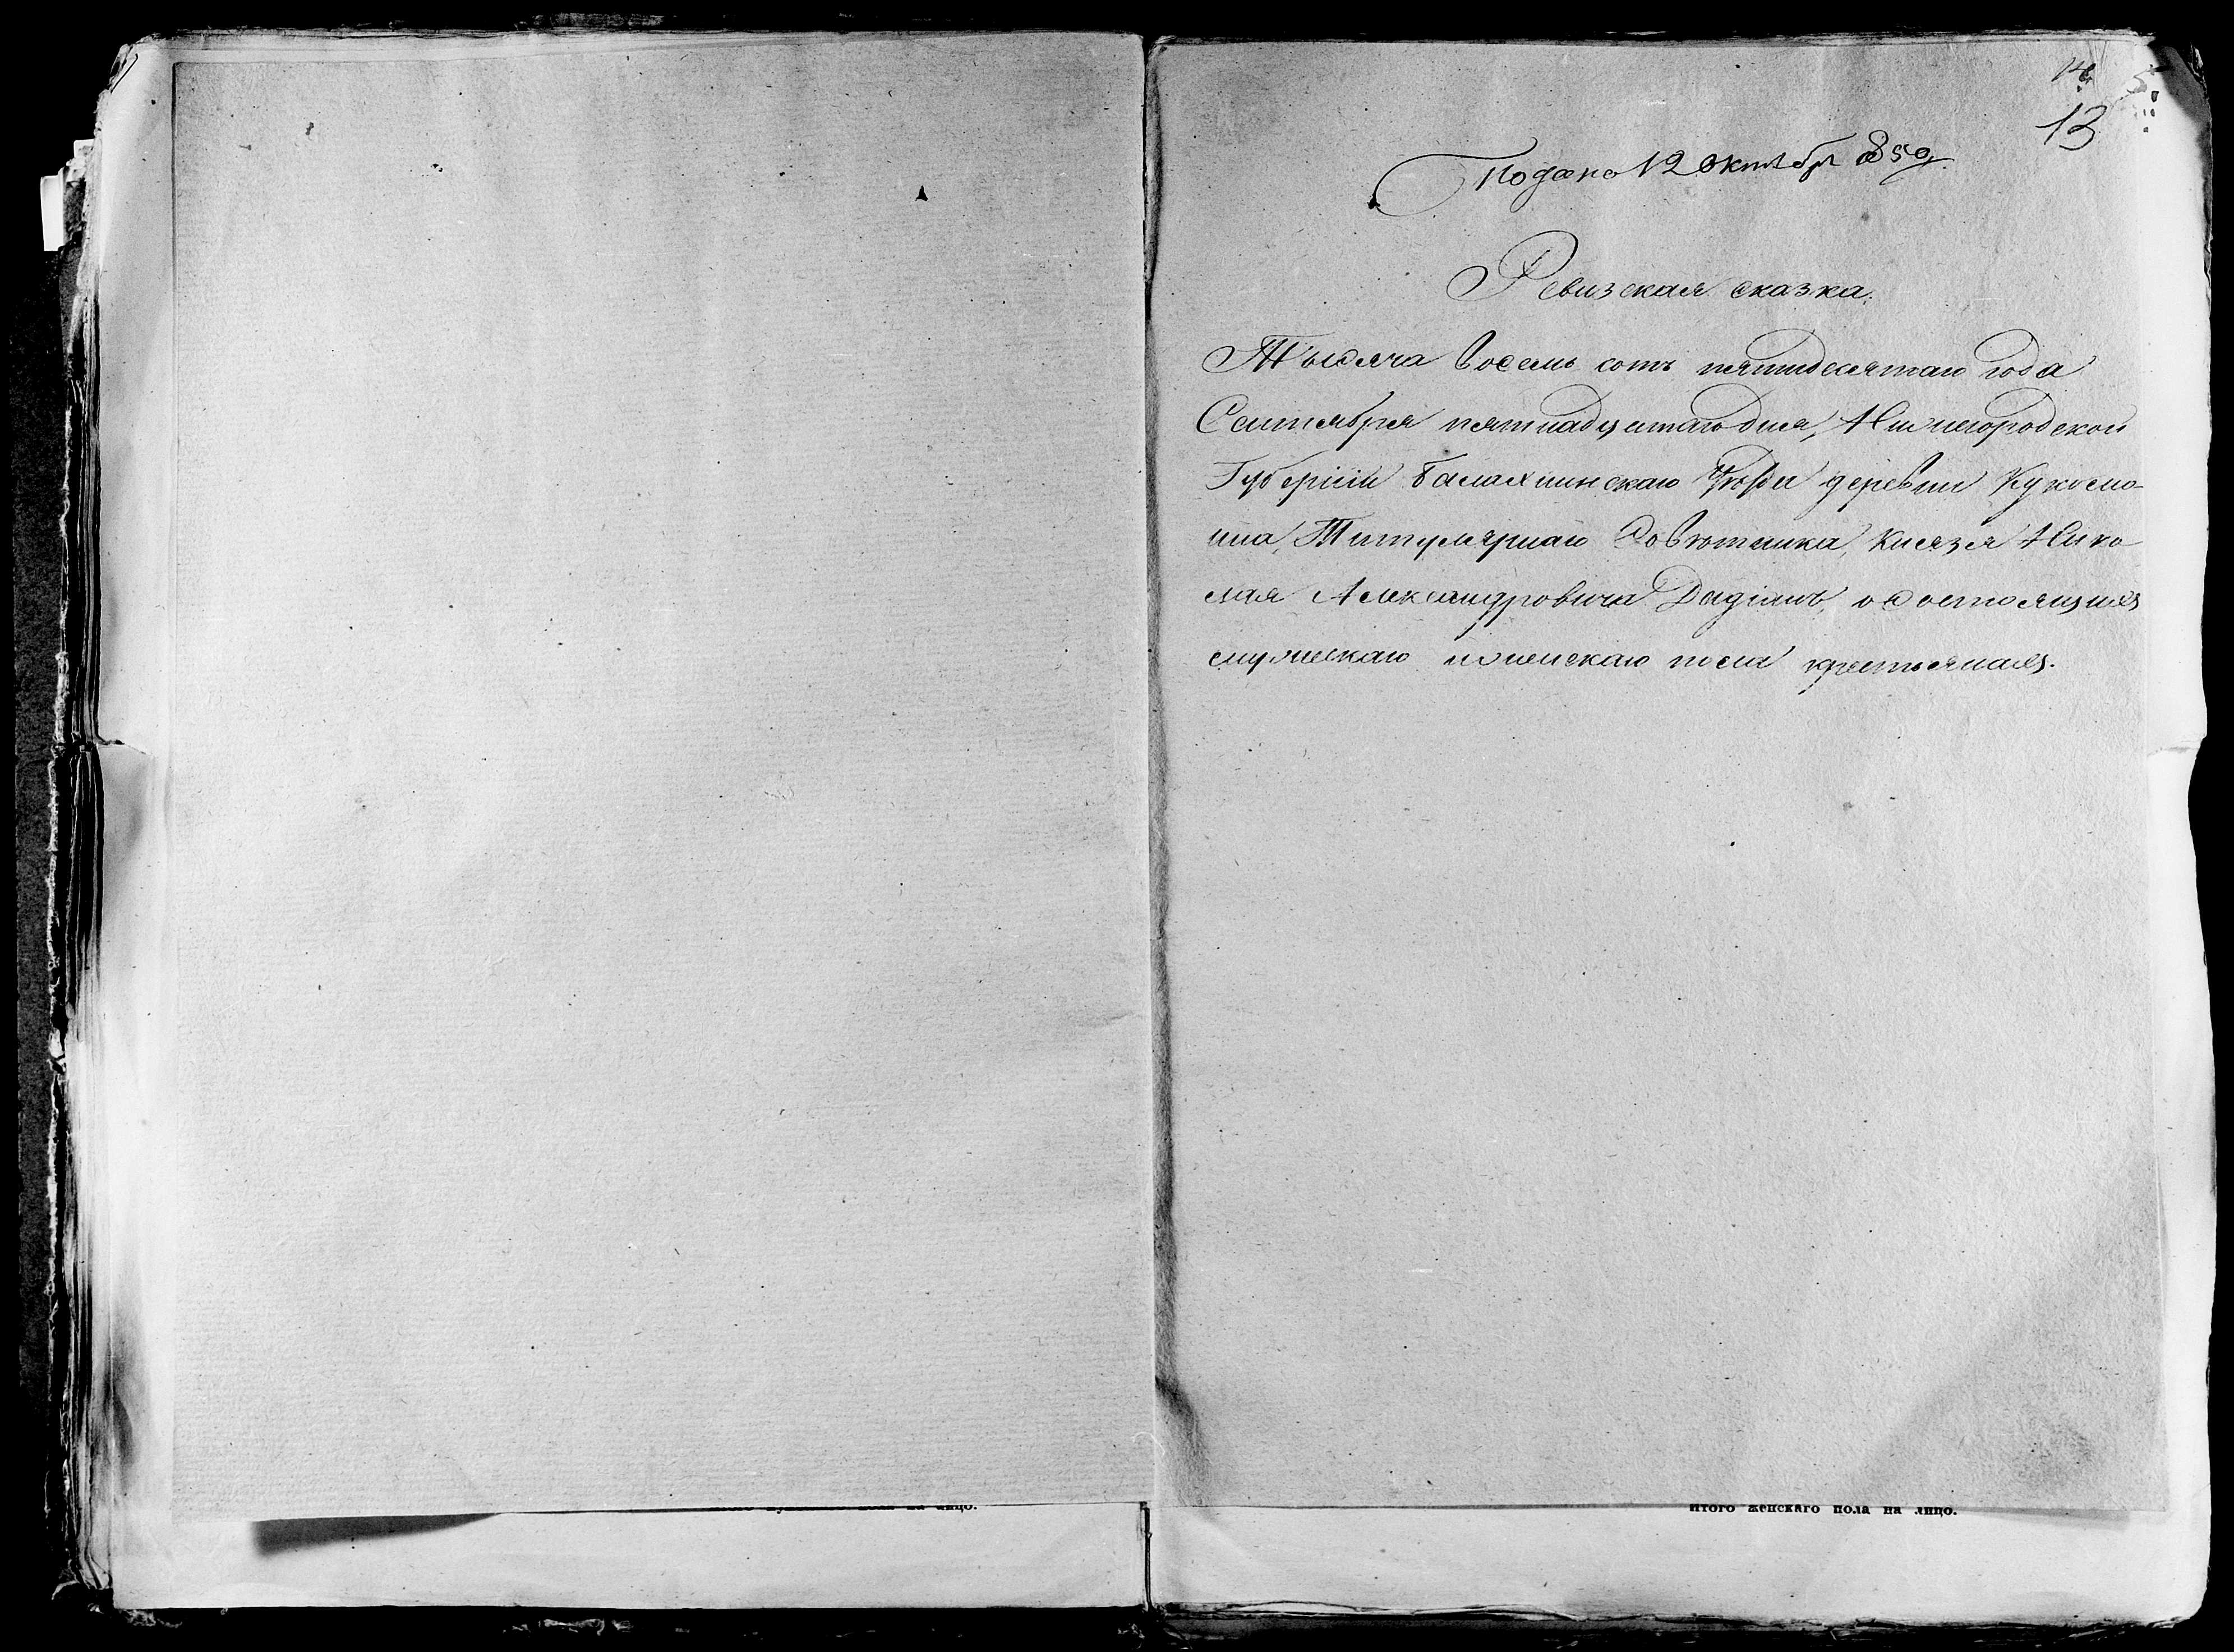 13
Подано 12 октябр 850
Ревизская сказка.
Тысяча восемь сотъ пятидесятаго года
Сентября пятнадцатаго дня, Нижегородской
Губерніи Балахнинскаго Уѣзда деревни
Титулярнаго Совѣтника, Князя Нико
лая Александровича Дадіанъ, о состоящихъ
мужескаго и женскаго пола крестьянахъ.
пола на лицо.
Итого женскаго пола на лицо.